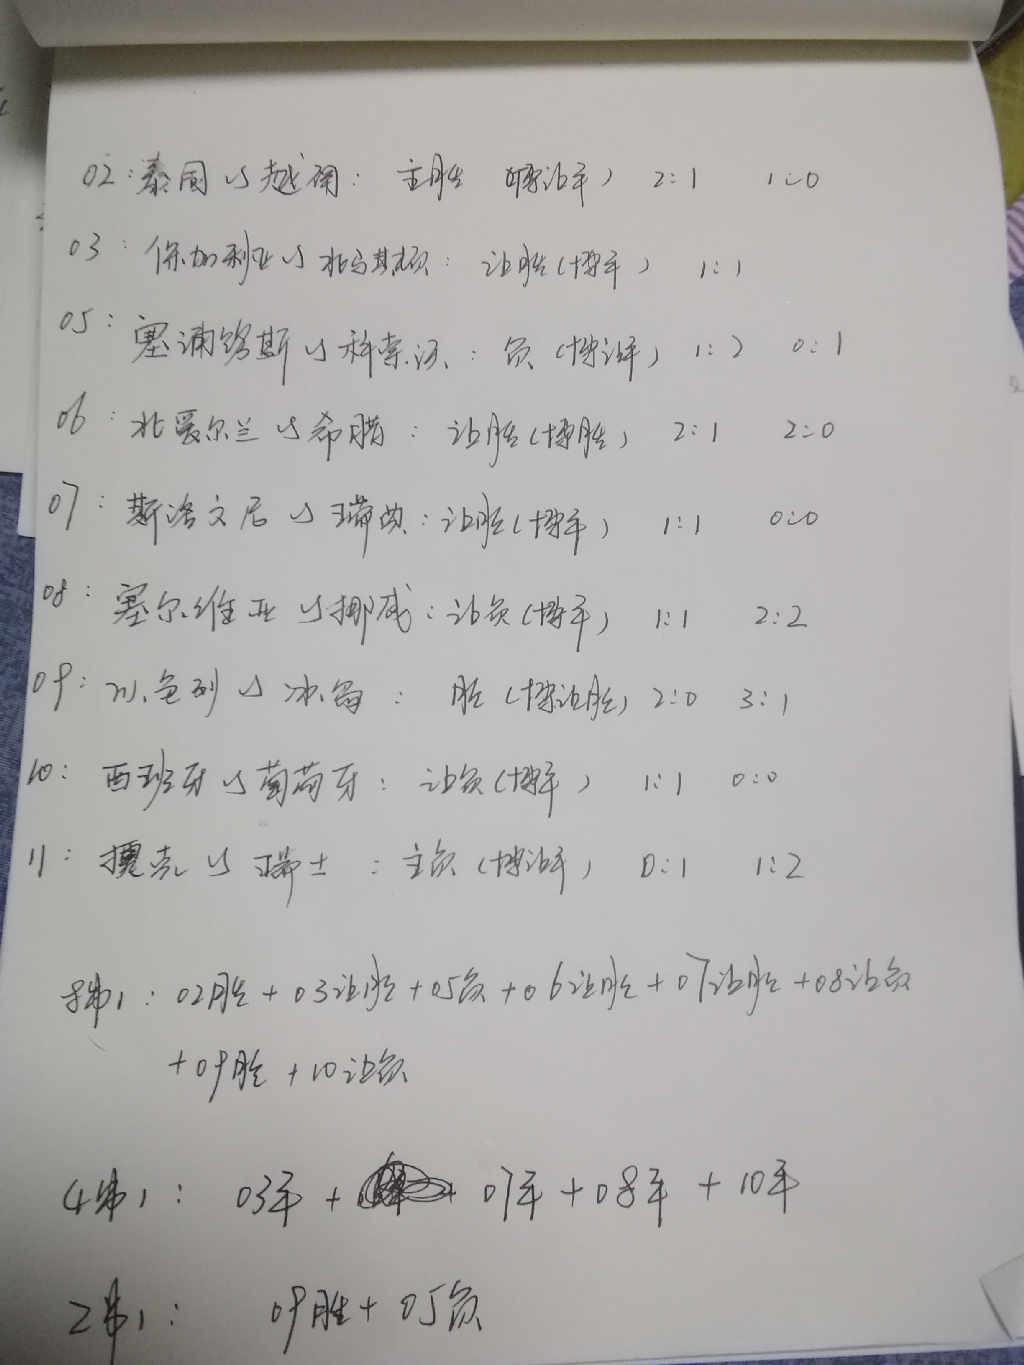 02:泰国VS越南: 主胜 (博让平) 2:1 1:0
03: 保加利亚VS北马其顿: 让胜(博平) 1:1
05: 塞浦路斯VS科索沃: 负(博让平) 1:2 0:1
06: 北爱尔兰VS希腊: 让胜(博胜) 2:1 2:0
07: 斯洛文尼VS瑞典: 让胜(博平) 1:1 0:0
08: 塞尔维亚VS挪威: 让负(博平) 1:1 2:2
09: 以色列VS冰岛: 胜(博让胜) 2:0 3:1
10: 西班牙VS葡萄牙: 让负(博平) 1:1 0:0
11: 捷克VS瑞士: 主负(博让平) 0:1 1:2
8串1: 02胜+03让胜+05负+06让胜+07让胜+08让负
+09胜+10让负
4串1: 03平+07平+08平+10平
2串1: 09胜+05负